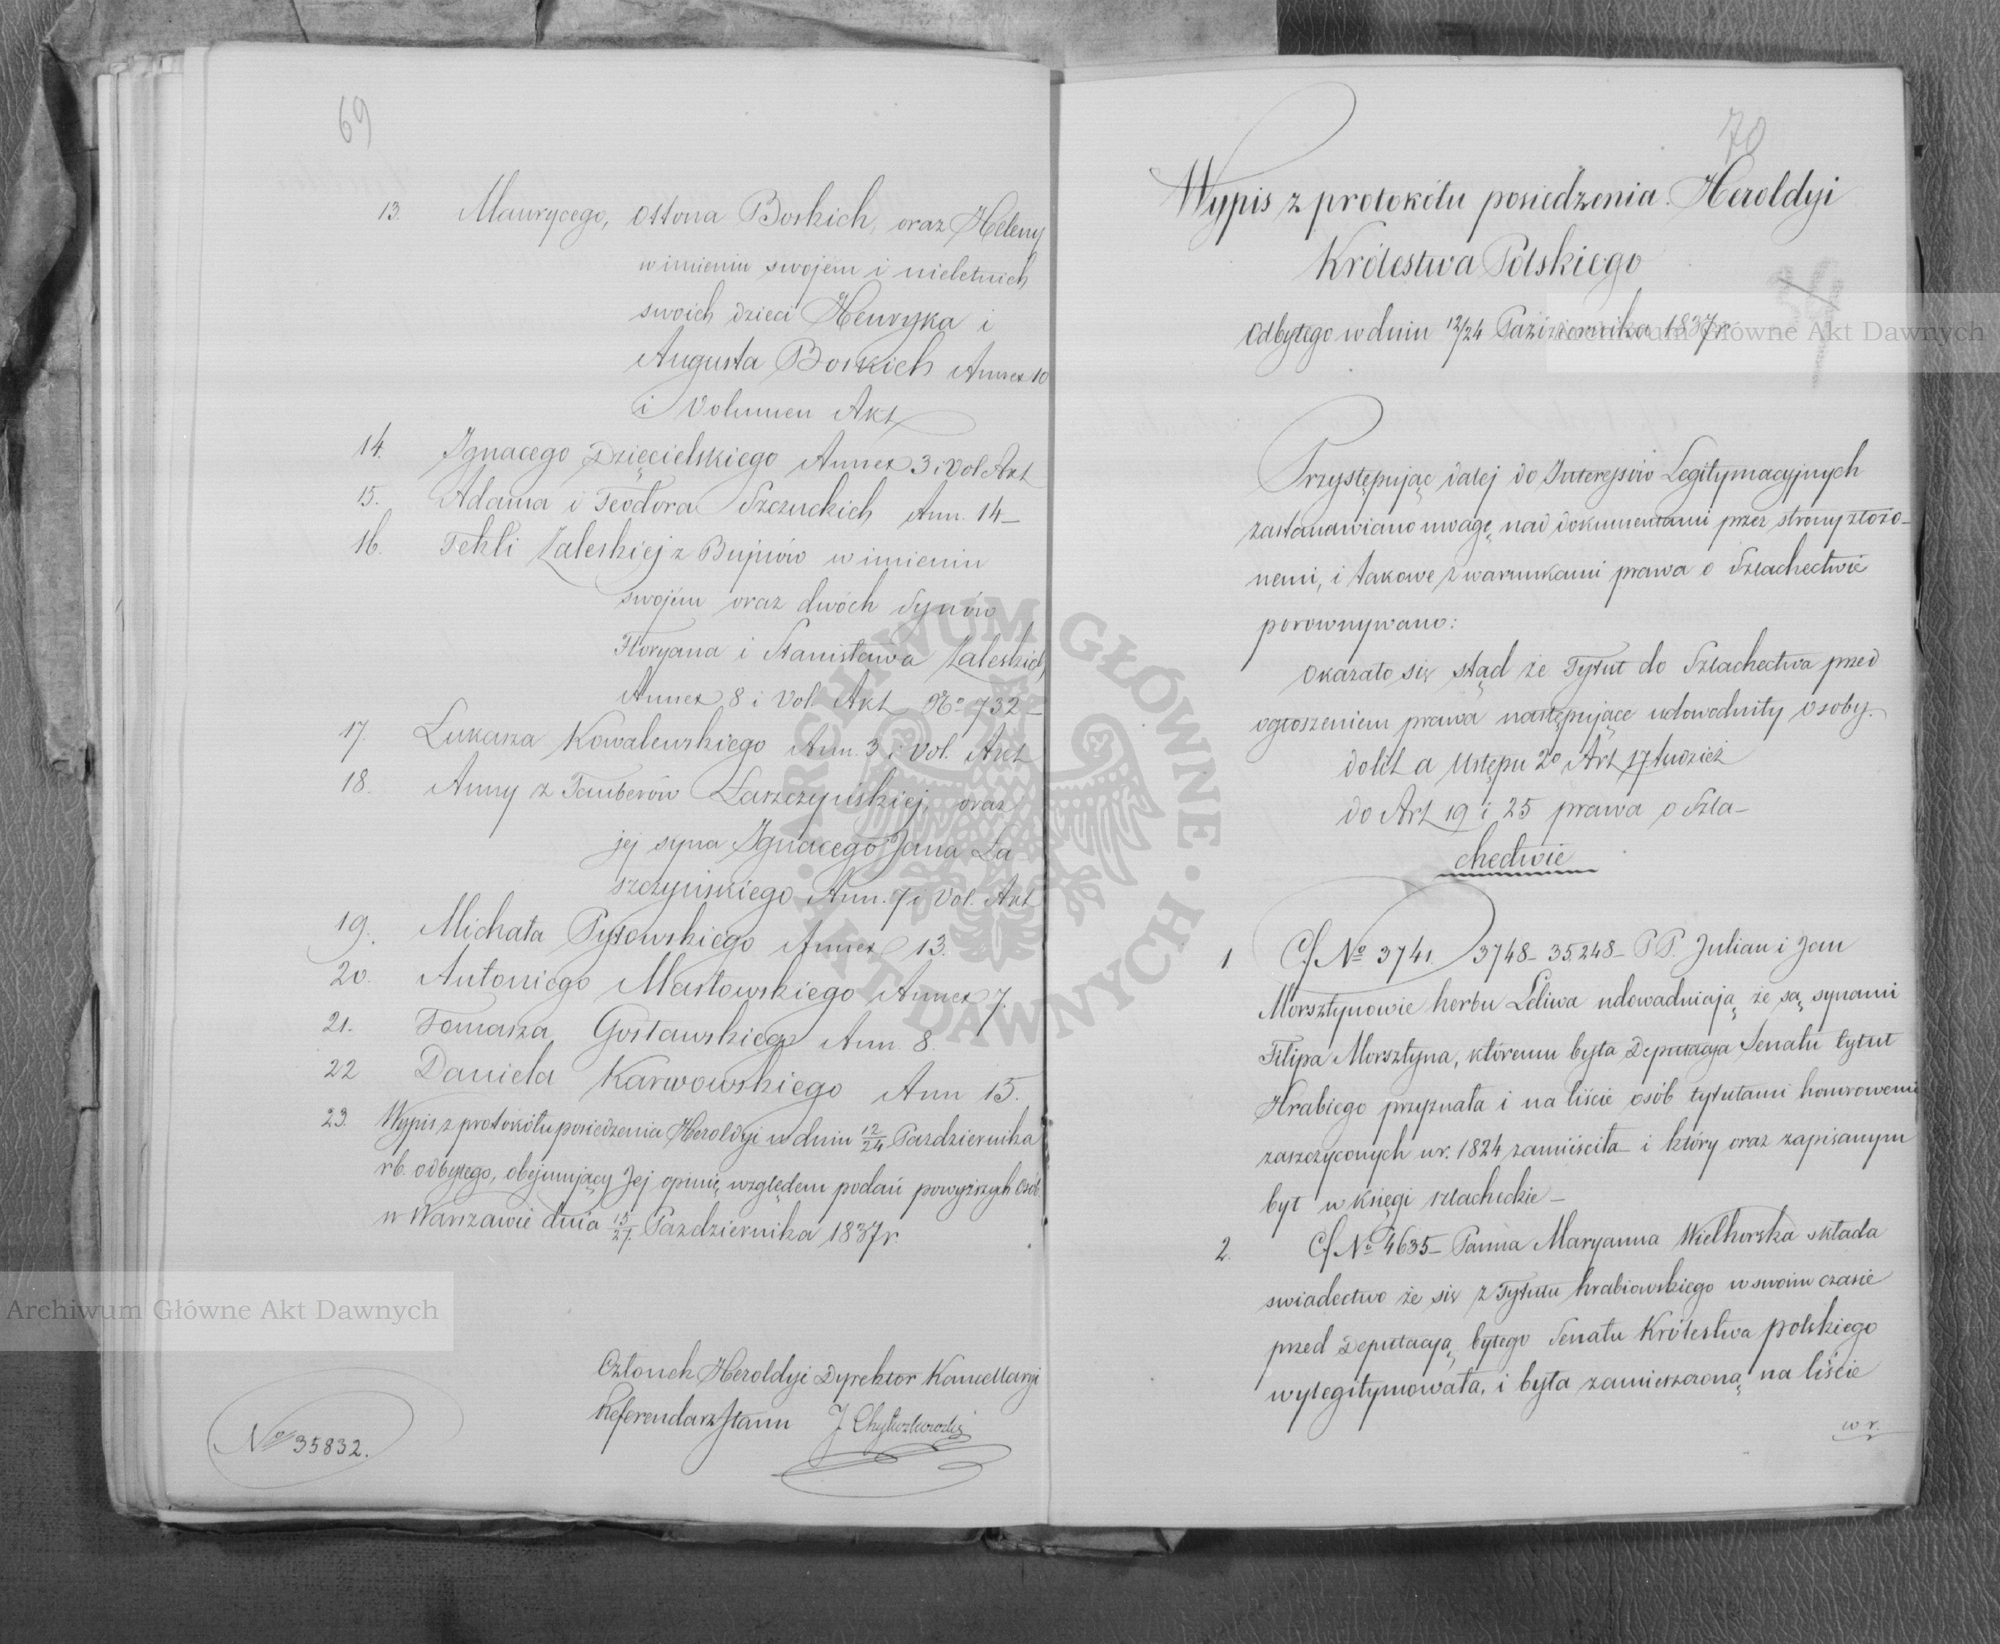 69
13. Maurycego, Ottona Boskich, oraz Heleny
w imieniu swojem i nieletnich
swoich dzieci Henryka i
Augusta Boskich Annex 10
i Volumen Akt
14. Ignacego Dzięcielskiego Annex 3 i Vol Akt
15. Adama i Teodora Szczuckich Ann. 14 –
16. Tekli Zaleskiej z Bujnów w imieniu
swojém oraz dwóch Synów
Floryana i Stanisława Zaleskich
Annex 8 i Vol. Akt No 732 –
17. Łukasza Kowalewskiego Ann. 3 i Vol. Akt
18. Anny z Tauberów Łaszczyńskiej, oraz
jej syna Ignacego Jana Ła
szczyńskiego Ann. 7 i Vol. Akt
19. Michała Pytowskiego Annex 13.
20. Antoniego Masłowskiego Annex 7.
21. Tomasza Gosławskiego Ann. 8.
22 Daniela Karwowskiego Ann 15.
23. Wypis z protokółu posiedzenia Heroldyi w dniu 12/24 Pazdziernika
rb. odbytego, obejmujący Jej opinię względem podań powyższych Osób.
w Warszawie dnia 15/27 Pazdziernika 1837 r
Członek Heroldyi Dyrektor Kancellaryi
Referendarz Stanu J.
No 35832.
70
Wypis z protokółu posiedzenia Heroldyi
Królestwa Polskiego
Odbytego w dniu 12/24 Października 1837 r
Przystępując dalej do Interessów Legitymacyjnych
zastanawiano uwagę nad dokumentami przez strony złożo–
nemi, i takowe z warunkami prawa o Szlachectwie
porownywano:
Okazało się stąd że Tytuł do Szlachectwa przed
ogłoszeniem prawa następujące udowodniły osoby.
do lit a Ustępu 2o Art 17 tudzież
do Art 19 i 25 prawa o Szla–
chectwie
1. Cf No 3741. 3748 – 35.248 – PP. Julian i Jan
Morsztynowie herbu Leliwa udowadniają że są synami
Filipa Morsztyna, któremu była Deputacya Senatu tytuł
Hrabiego przyznała i na liście osób tytułami honorowemi
zaszczyconych w r. 1824 zamieściła – i który oraz zapisanym
był w księgi szlacheckie –
2. Cf No 4635 – Panna Maryanna Wielhorska składa
swiadectwo że się z Tytułu hrabiowskiego w swoim czasie
przed Deputacyją byłego Senatu Królestwa polskiego
wylegitymowała, i była zamieszczoną na liście
w r.
Archiwum Główne Akt Dawnych
Archiwum Główne Akt Dawnych
ARCHIWUM GŁÓWNE · AKT DAWNYCH ·